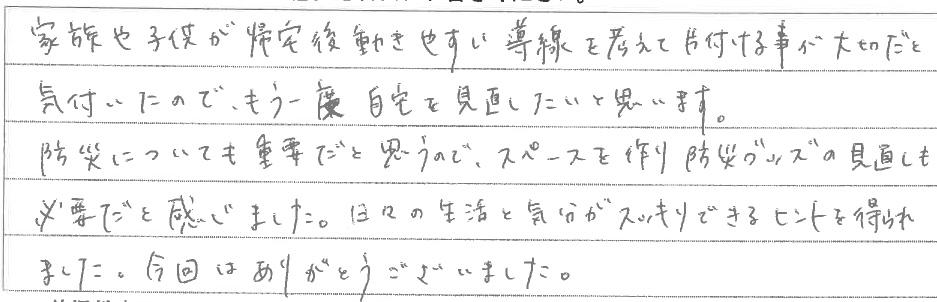 家族や子供が帰宅後動きやすい導線を考えて片付ける事が大切だと
気付いたので、もう一度自宅を見直したいと思います。
防災についても重要だと思うので、スペースを作り防災グッズの見直しも
必要だと感じました。日々の生活と気分がスッキリできるヒントを得られ
ました。今回はありがとうございました。